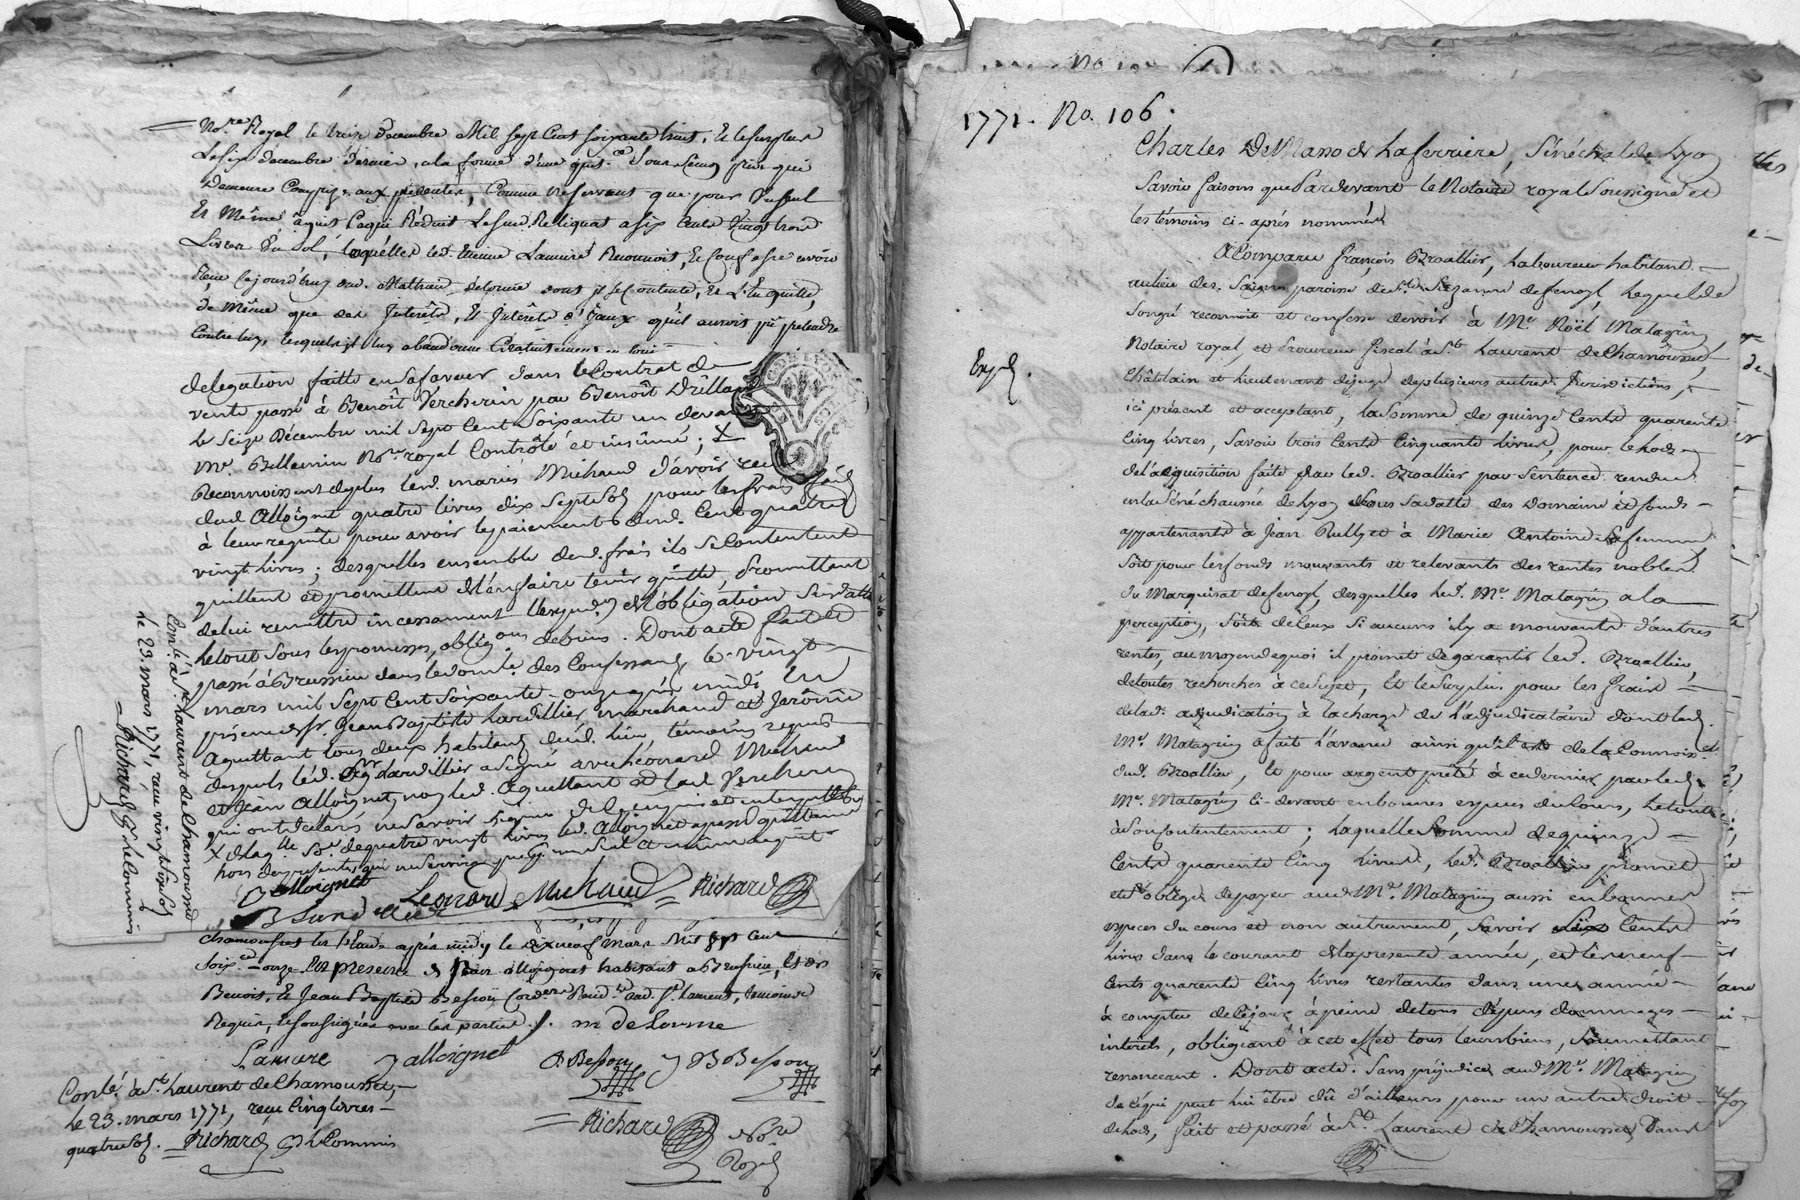 No.re Royal le treize Decembre Mil sept Cent soixante huit, Et le surplus
Le six decembre dernier, a la forme d'une quit.ce Sous seing privé qui
Demeure Comprise aux presentes, Comme ne servant que pour un seul
Et Même acquit Laqui Réduit Le sud. Reliquat a six Cents vingt trois
Livres Un Sol, lesquelles led. Lamure Reconnoit, Et Confesse avoir
Reçu Cejourd'huy dud. Mathieu delorme dont il se Contente, Et L'En quitte,
de Même que des Interêts, Et Interêts d'Iceux qu'il auroit pû pretendre
Contre luy, lesquels il luy abandonne Gratuitement
delegation faitte en sa faveur dans le Contrat de
vente passé à Benoît Vercherin par Benoît Drillard
le Seize Décembre mil Sept Cent Soixante un devant
Me. Billemin No.re royal Contrôlé et insinué ; X
Reconnoissent de plus led. mariés Michaud d'avoir reçu
dud. Alloignet quatre livres dix Sept Sols pour les frais faits
à leur requête pour avoir le paiement dud. Cent quatre
vingt livres ; desquelles ensemble dud. frais ils se Contentent
quittent et promettent de l'en faire tenir quitte, Promettant
de lui remettre incessamment l'expedon. de l'obligation susdatte
le tout Sous les promesses, obligons. de biens. Dont acte fait et
passé à Brussieu dans le domle. des Confessants le vingt
mars mil Sept Cent Soixante - onze après midi En
présence de Sr. Jean Baptiste Lardillier marchand et Jerôme
Aguettant tous deux habitants dud. lieu témoins requis
desquels led. Sr. Lardillier a Signé avec Leonard Michaud
et Jean Alloignet, non led. Aguettant et lad. Vercherin
qui ont déclaré ne Savoir Signer de ce enquis et interpellés
X de laqlle. Soe. de quatre vingt livres led. Alloignet a passé quittance
hors des presentes qui ne servira que pour un seul et même acquit
Alloignet Leonard Michaud Richard
Conlé. à St. Laurent de Chamousset
le 23. mars 1771, reçu vingt six sols
Richard Gr. le Commis
chamousset les Etude après midy le dixneuf mars Mil sept Cent
soixte. onze En presence de Jean alloignet habitant a Brussieu, Et de
Benoit, Et Jean Baptiste Besson Cordiers Resid.ts aud. St. Laurent, temoins
Requis, Et soussignés avec les parties. m delorme
Lamure J alloignet B. Besson J B Besson
Conlé. à St. Laurent de Chamousset,
le 23. mars 1771, reçu Cinq livres
quatre sols. Richard Gr le Commis
Richard No.re
Royal
1771. No. 106.
Charles De Masso de La ferriere, Sénéchal de Lyon
Savoir faisons que Pardevant le Notaire royal Soussigné et
les témoins ci-après nommés
A Comparu françois Broallier, laboureur habitant
au lieu des paroisse de Ste. Suzanne de fenoyl, lequel de
Songré reconnoit et confesse devoir à Me. Noël Matagrin
Notaire royal, et Procureur fiscal à St. Laurent de Chamousset,
Expé.
Châtelain et lieutenant de juge de plusieurs autres Jurisdictions,
ici présent et acceptant, la Somme de quinze Cents quarente
Cinq livres, Savoir trois Cents Cinquante livres, pour le hods
de l'acquisition faite par led. Broallier par Sentence rendue
en la Sénéchaussée de Lyon Sous Sa datte des Domaine et fonds
appartenants à Jean Rully et à Marie Antoine Sa femme
Soit pour les fonds mouvants et relevants des rentes nobles
du Marquisat de fenoyl, desquelles led. Me. Matagrin a la
perception, Soit de Ceux Si aucuns il y a mouvants d'autres
rentes, au moyen de quoi il promet de garantir led. Broallier,
de toutes recherches à ce Sujet, Et le Surplus pour les frais
de lad. adjudication à la charge de l'adjudicataire dont led.
Me. Matagrin a fait l'avance ainsi qu'il est de la Connoisce.
dud. Broallier, & pour argent prêté à ce dernier par led.
Me. Matagrin Ci-devant en bonnes especes du Cours, le tout
à Son Contentement ; laquelle Somme de quinze
Cents quarente Cinq livres, led. Broallier promet
et S'oblige de payer aud. Me. Matagrin aussi en bonnes
especes du cours et non autrement, Savoir Six Cents
livres dans le courant de la presente année, et les neuf
Cents quarente Cinq livres restantes dans une année
à compter de Ce jour à peine de tous dépens dommages
intérêts, obligeant à cet effet tous Ses biens, Soumettant
renonceant. Dont acte. Sans préjudice aud. Me. Matagrin
de Ce qui peut lui être dû d'ailleurs pour un autre droit
de hods, fait et passé à St. Laurent de Chamousset Dans